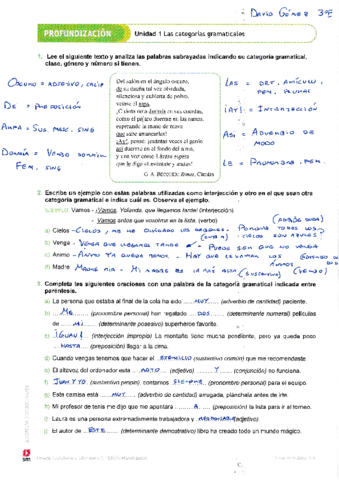 DAVID GÓMEZ 3ºE
PROFUNDIZACIÓN
Unidad 1 Las categorías gramaticales
1. Lee el siguiente texto y analiza las palabras subrayadas indicando su categoría gramatical,
clase, género y número si tienen.
OSCURO = ADJETIVO,
DE = PREPOSICIÓN
ARPA = SUS. MASC. SING
FEM, SING
Del salón en el ángulo oscuro,
de su dueña tal vez olvidada,
silenciosa y cubierta de polvo,
veíase el arpa.
¡Cuánta nota dormía en sus cuerdas,
como el pájaro duerme en las ramas,
esperando la mano de nieve
que sabe arrancarlas!
¡Ay!, pensé; ¡cuántas veces el genio
así duerme en el fondo del alma,
y una voz como Lázaro espera
que le diga «Levántate y anda»!
G. A. BÉCQUER: Rimas, Cátedra
LAS = DET. ARTÍCULO,
FEM, PLURAL
¡AY! = INTERJECCIÓN
ASÍ = ADVERBIO DE
MODO
LE = PRONOMBRE, PER.
2. Escribe un ejemplo con estas palabras utilizadas como interjección y otro en el que sean otra
categoría gramatical e indica cuál es. Observa el ejemplo.
EJEMPLO: Vamos - ¡Vamos, Yolanda, que llegamos tarde! (interjección)
- Vamos andando que vosotros en la lista. (verbo)
a) Cielos -
b) Venga - VENGA QUE LLEGAMOS TARDE - PUEDE SER QUE NO VENGA
c) Ánimo - ÁNIMO YA QUEDA MENOS - HAY QUE LLEVAR LOS ÁNIMOS
d) Madre MADRE MÍA - MI MADRE ES LA MÁS (SUSTANTIVO)
(VERBO)
3. Completa las siguientes oraciones con una palabra de la categoría gramatical indicada entre
paréntesis.
a) La persona que estaba al final de la cola ha sido MUY (adverbio de cantidad) paciente.
b) ME (pronombre personal) han regalado DOS (determinante numeral) películas
de MI (determinante posesivo) superhéroe favorito.
c) ¡GUAU! (interjección impropia) La montaña tiene mucha pendiente, pero ya queda poco
HASTA (preposición) llegar a la cima.
d) Cuando vengas tenemos que hacer el EJERCICIO (sustantivo común) que me recomendaste.
e) El altavoz del ordenador está ROTO (adjetivo) Y (conjunción) no funciona.
f) JUAN Y YO (sustantivo propio), contamos SIEMPRE (pronombre personal) para el equipo.
g) Esta camisa está MUY (adverbio de cantidad) arrugada, plánchala antes de irte.
h) Mi profesor de tenis me dijo que me apuntara A (preposición) la lista para ir al torneo.
i) Laura es una persona extremadamente trabajadora y RESPONSABLE (adjetivo).
j) El autor de ESTE (determinante demostrativo) libro ha creado todo un mundo mágico.
sm